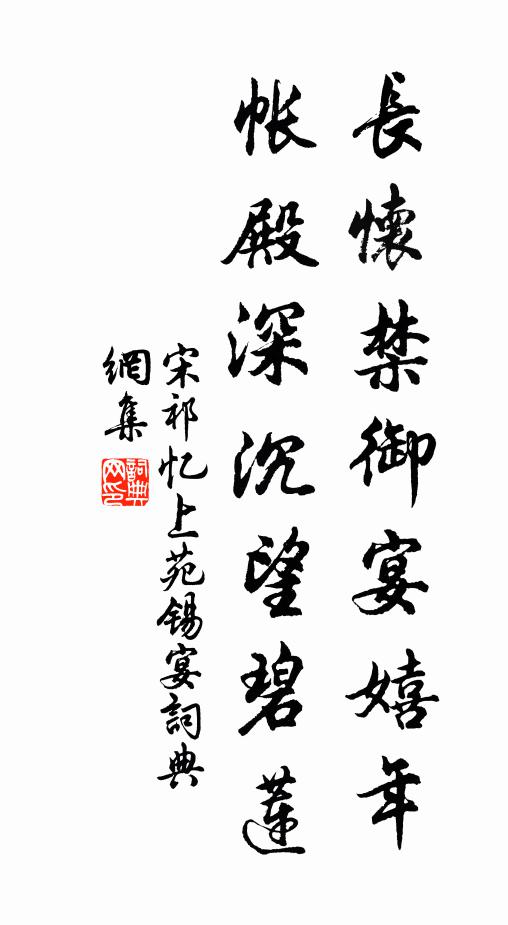 長懷禁御宴嬉年
帐殿深沉望碧蓮
宋祁忆上苑锡宴詞典
網集
詞典网印